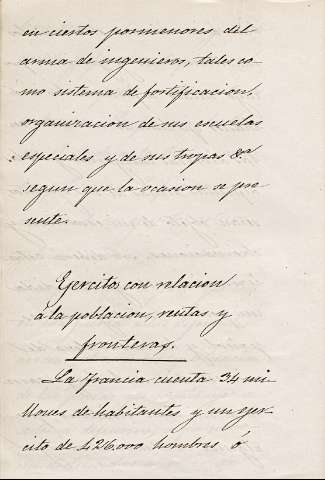 en ciertos pormenores del
arma de ingenieros, tales co
mo sistema de fortificacion,
organizacion de sus escuelas
especiales y de sus tropas &a
segun que la ocasion se pre
sente.
Ejercitos con relacion
á la poblacion, rentas y
fronteras.
La Francia cuenta 34 mi
llones de habitantes y un ejer
cito de 426.000 hombres ó